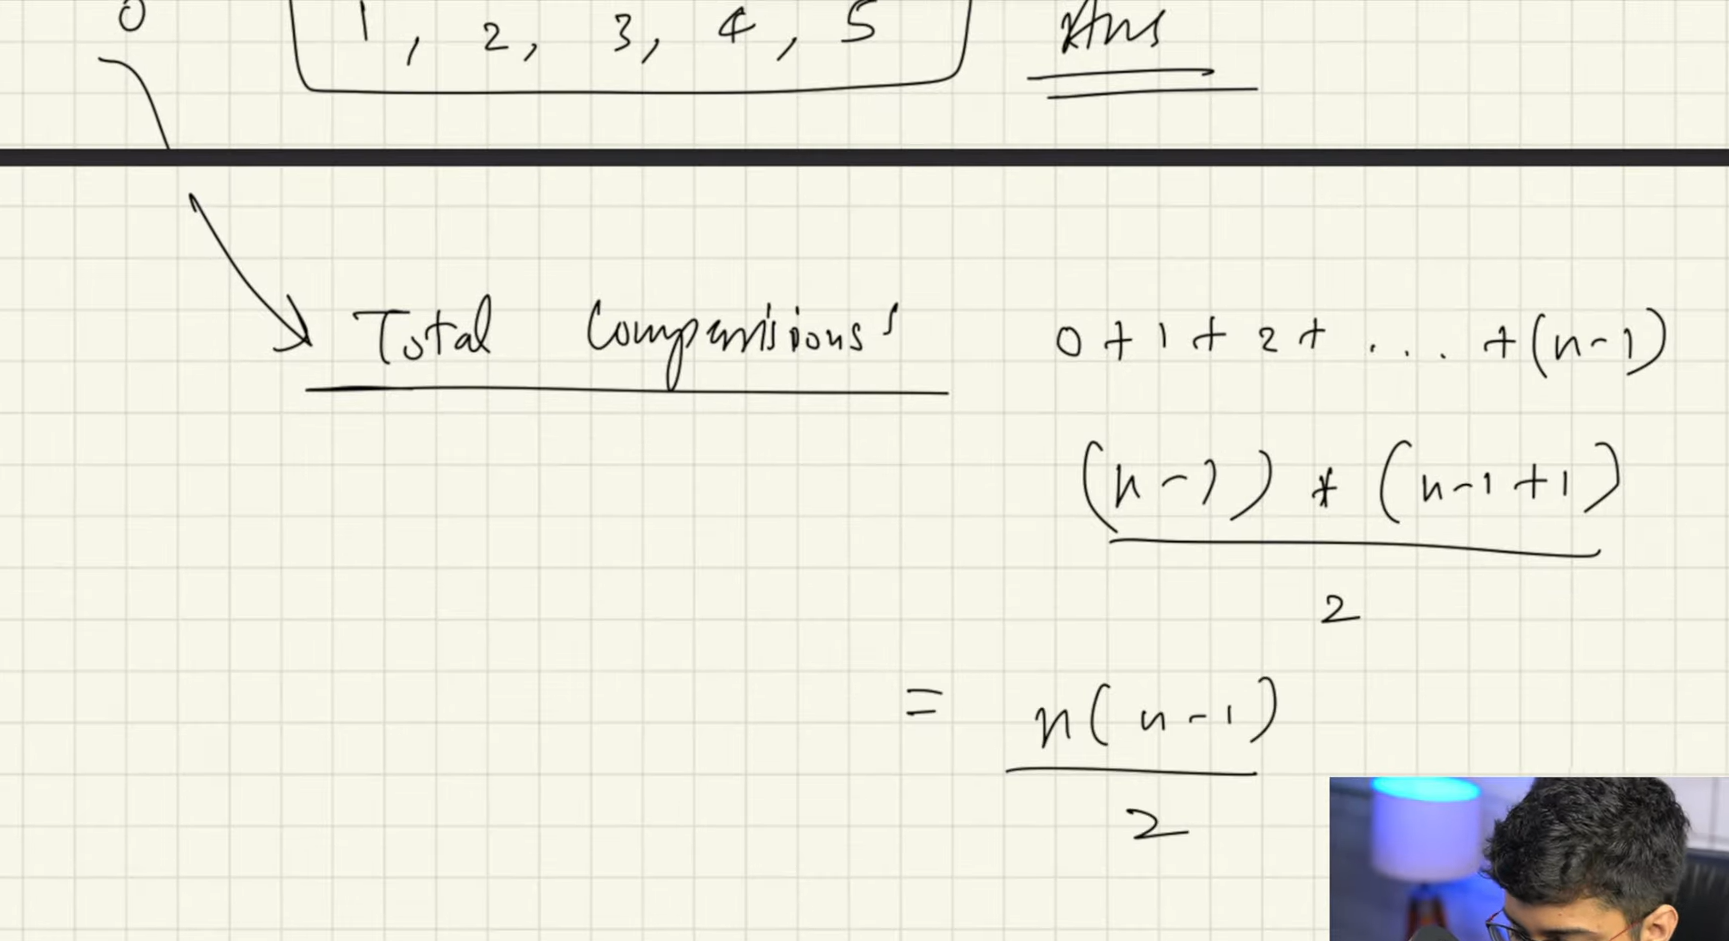 0
1, 2, 3, 4, 5 Ans
Total Comparisions 0 + 1 + 2 + ... + (n-1)
(n-1) * (n-1+1)
2
= n(n-1)
2